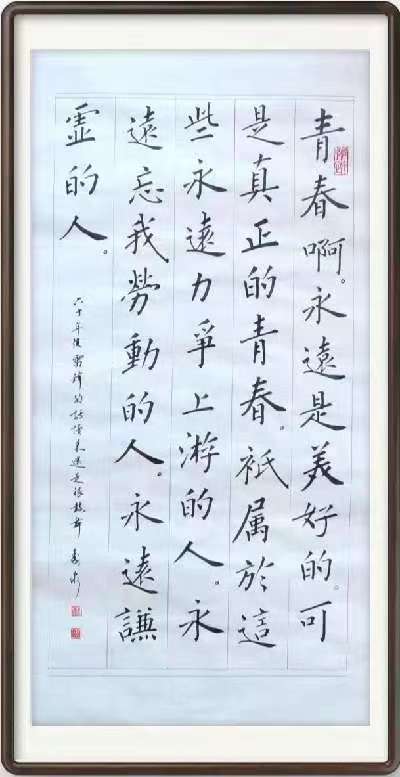 青春啊。永遠是美好的。可
是真正的青春。祇属於這
些永遠力爭上游的人。永
遠忘我勞動的人。永遠謙
虚的人。
六十年後雷鋒的話